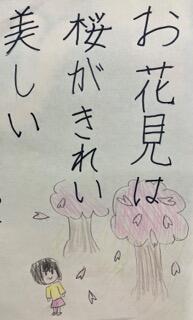 お花見は
桜がきれい
美しい